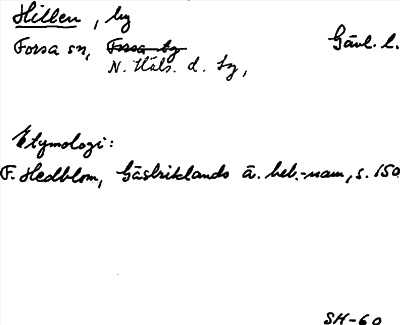 Hillen, by
Forsa sn, Forsa by Gävl. l.
N. Häls. d. sg,
Etymologi:
F. Hedblom, Gästriklands ä. beb.-namn, s. 150
SH-60